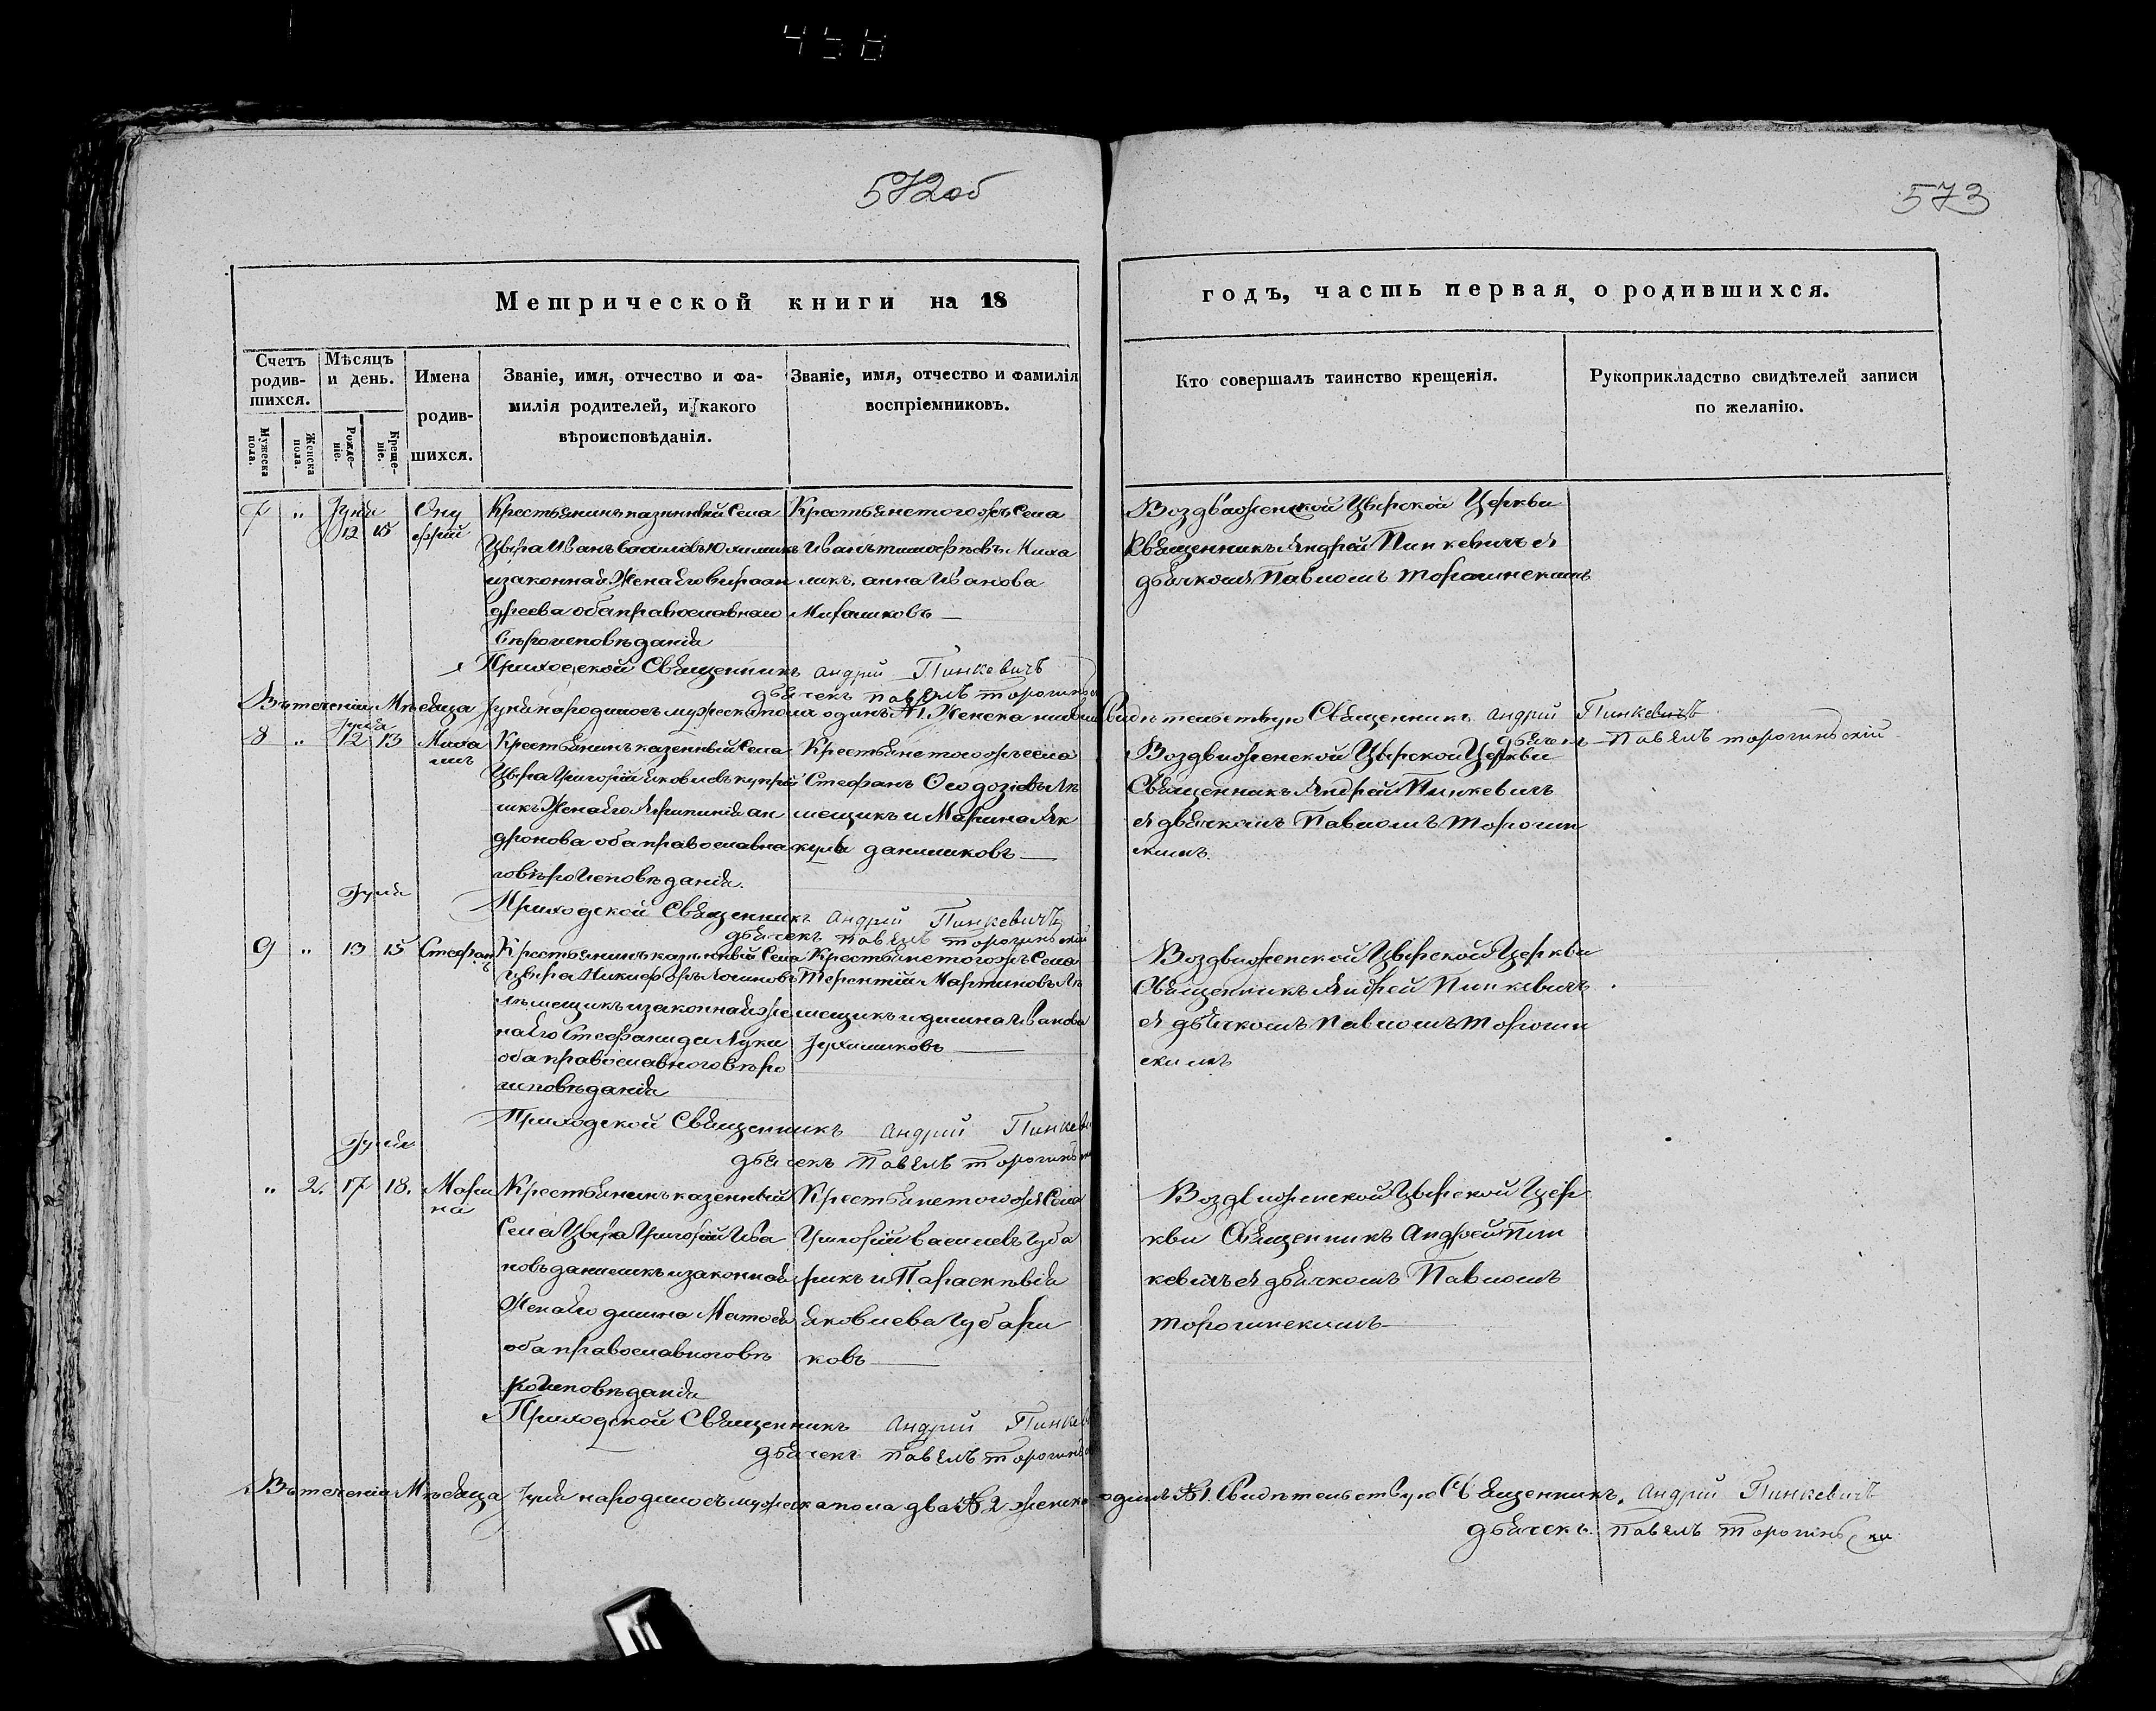 456
572об
573
Метрической книги на 18
годъ, часть первая, о родившихся.
Счетъ родив-шихся.
Мѣсяцъ и день.
Имена родив-шихся.
Званіе, имя, отчество и фа-
милія родителей, и какого
вѣроисповѣданія.
Званіе, имя, отчество и фамилія
воспріемниковъ.
Кто совершалъ таинство крещенія.
Рукоприкладство свидѣтелей записи
по желанію.
Мужеска пола.
Женска пола.
Рожде-ніе.
Креще-ніе.
7 " Іунія 12 15 Ону
фрій
Крестьянинъ казенный Села
Цвѣра Иванъ Василовъ Юхимикъ
и законная Жена Его Вѣра ан
дреева оба православнаго
вѣроисповѣданія
Крестьяне того жъ Села
Иванъ тимофѣевъ Миха
ликъ, анна Иванова
Воздвиженской Цвѣрской Церкви
Священникъ Андрей Пинкевичъ с
дьячкомъ Павломъ торогинскимъ
Приходской Священникъ андрий Пинкевичъ
дьячекъ павелъ
Въ теченіи Мѣсяца Іунія народилось мужеска пола одинъ №1. Женска
Свидѣтельствую Священникъ андрий Пинкевичъ
дьячекъ Павелъ торогинский
8 " Іулія 12 13 Миха
илъ
Крестьянинъ казенный Села
Цвѣра Григорій Яковлевъ
Жена Его Агрипинія ан
дронова оба православна
го вѣроисповѣданія.
Крестьяне того жъ села
Стефанъ Ѳеодозіевъ Ля
мещикъ и Марина
данишковъ
Воздвиженской Цвѣрской Церкви
Священникъ Андрей Пинкевичъ
с дьячкомъ Павломъ торогин
скимъ.
Приходской Священникъ андрий Пинкевичъ
дьячекъ павелъ торогинский
Іулія
9 " 13 15 Стефанъ
Крестьянинъ казенный Села
Цвѣра Никифоръ
и законная же
на Его Стефанида Луки
оба православного вѣро
исповѣданія
Крестьяне того жъ Села
Терентій Мартиновъ Ля
мещикъ и димна Иванова
Воздвиженской Цвѣрской Церкви
Священникъ Андрей Пинкевичъ
с дьячкомъ Павломъ торогин
скимъ
Приходской Священникъ андрий
дьячекъ Павелъ
Іулія
" 2. 17 18. Мари
на
Крестьянинъ казенный
Села Цвѣра Григорій Ива
новъ данишикъ и законная
Жена Его димна
оба православного вѣ
роисповѣданія
Крестьяне того жъ Села
Григорій Василевъ Губа
рикъ и Параскевія
Яковлева Губари
ковъ
Воздвиженской Цвѣрской Цер
кви Священникъ Андрей Пин
кевичъ с дьячкомъ Павломъ
торогинскимъ
Приходской Священникъ андрий
дьячекъ павелъ
Въ теченіи Мѣсяца Іулія народилось мужеска пола два №2 женска
одинъ №1. Свидѣтельствую Священникъ, андрий Пинкевичъ
дьячекъ павелъ